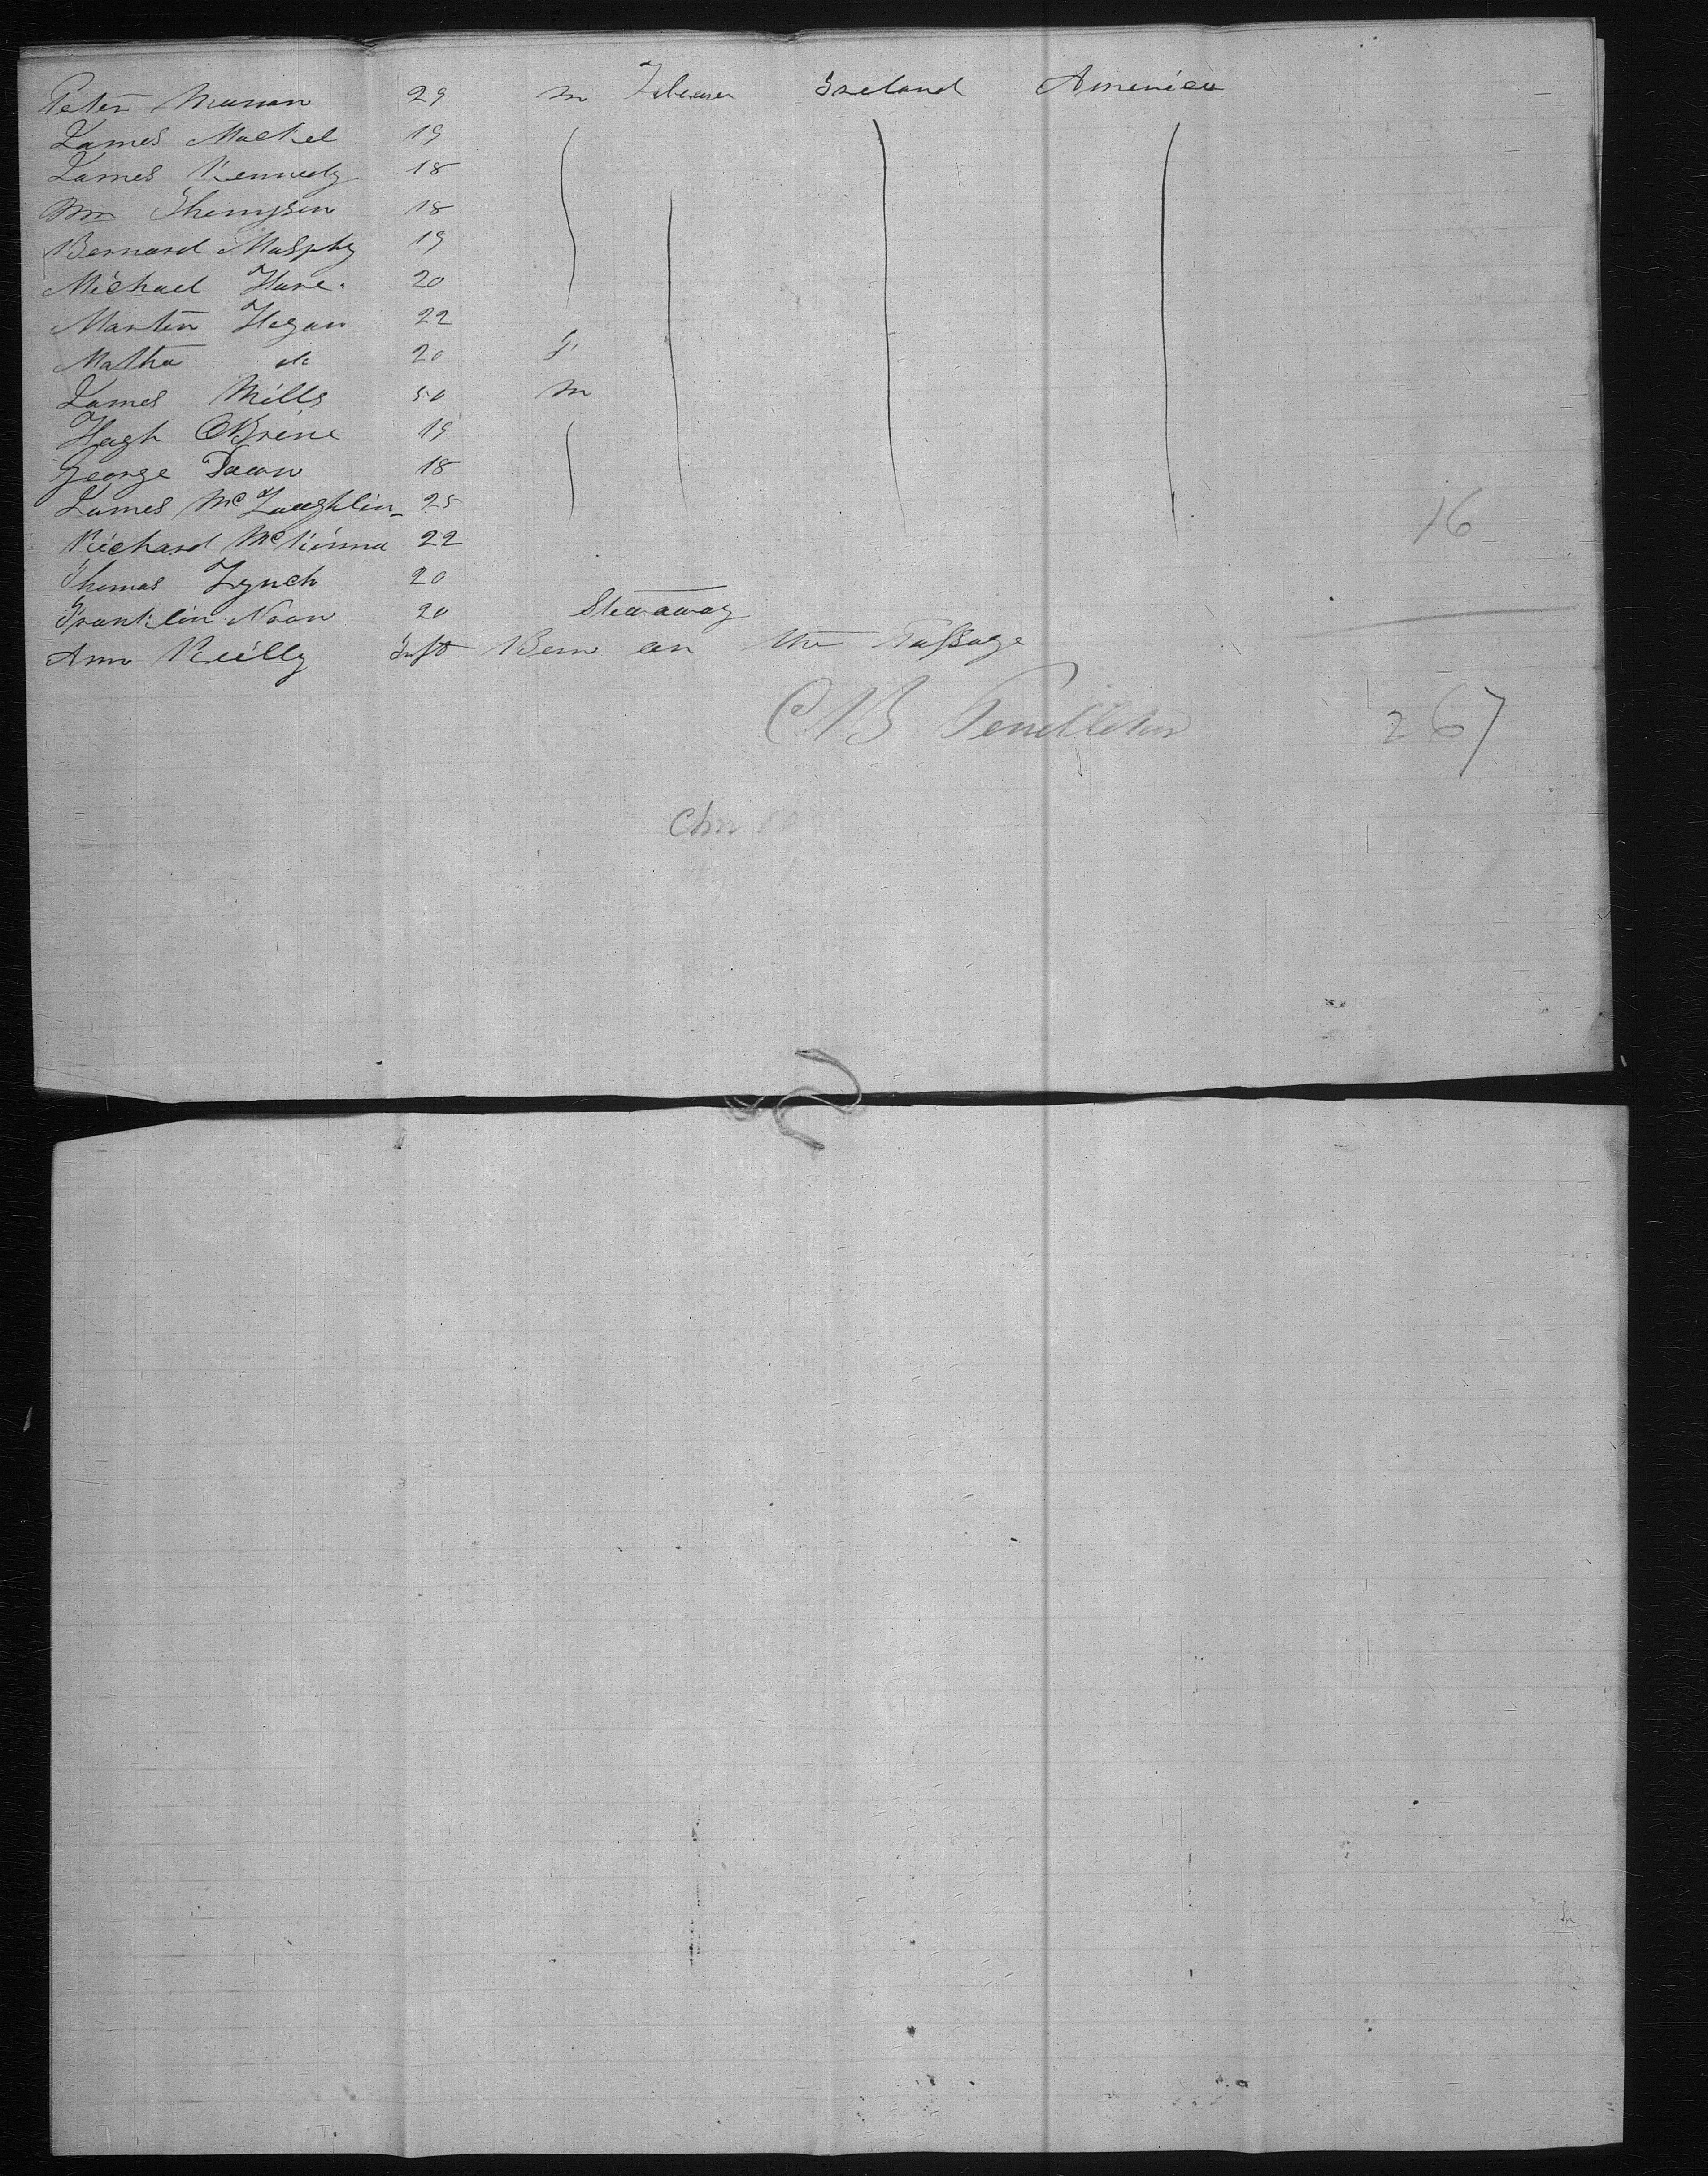 Peter Munan 29 m Laborer Ireland America
James Mackel 19
James Kennedy 18
Wm Thompson 18
Bernard Murphy 19
Michael Hare 20
Martin Hegan 22
Matha do 20 f
James Mills 50 m
Hugh OBrine 19
George Dawn 18
James McLaughlin 25
Richard McKinna 22 16
Thomas Lynch 20
Franklin Noon 20 Stowaway
Ann Reilly Inft Born on the Passage
C B Pendleton 267